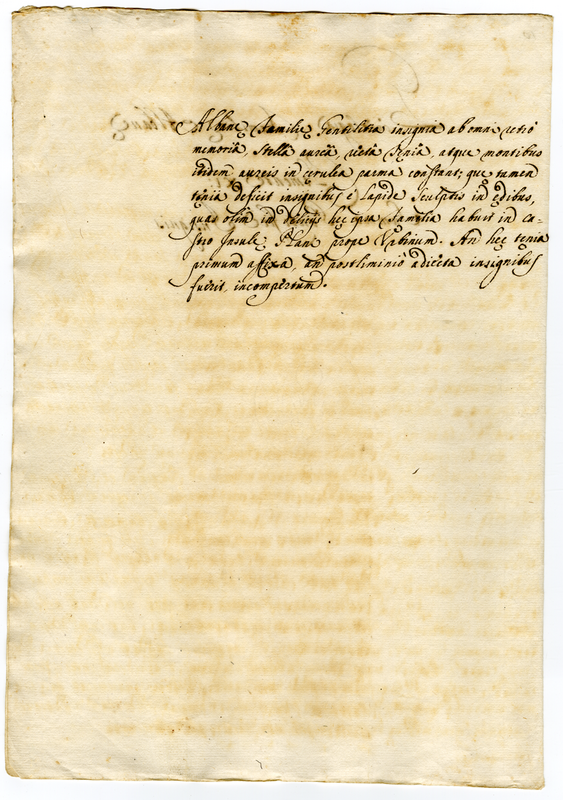 Albanę Familię Gentilitia insignia ab omni retrò
memoria, Stella aurea, uicta tęnia, atque montibus
itidem aureis in cęrulea parma constant; que tamen
tęnia deficit insignibus è Lapide Sculptis in ędibus,
quas olim in delicijs hęc ipsa Familia habuit in Ca-
stro Insulę Planę prope Vrbinum. An hęc tęnia
primum affixa, an postliminiò adiecta insignibus
fuerit, incompertum.